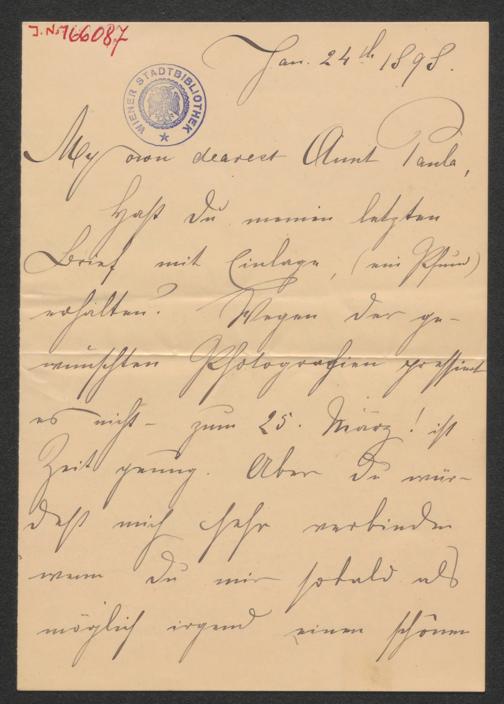 J. N. 166087
WIENER STADTBIBLIOTHEK
Jan. 24th 1898.
My own dearest Aunt Paula,
Hast Du meinen letzten
Brief mit Einlage, (ein Pfund)
erhalten? Wegen der ge-
wünschten Photografien pressiert
es nicht – zum 25. März! ist
Zeit genug. Aber Du wür-
dest mich sehr verbinden
wenn Du mir sobald als
möglich irgend einen schönen